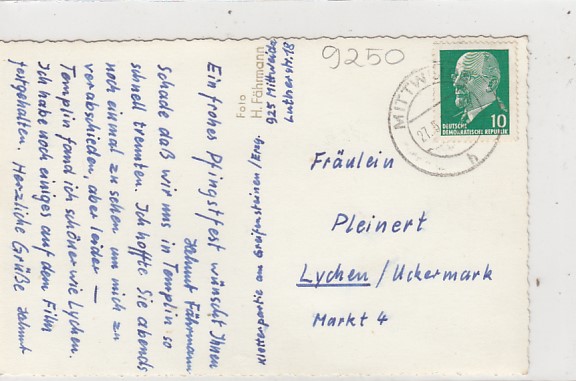 9250
MITTW
27.5
h
10
DEUTSCHE
DEMOKRATISCHE REPUBLIK
Foto
H. Fährmann
925 Mittweida
Lutherstr. 18
Kletterpartie am Greifensteinen/Erzg.
Ein frohes Pfingstfest wünscht Ihnen
Helmut Fährmann
Schade daß wir uns in Templin so
schnell trennten. Ich hoffte Sie abends
noch einmal zu sehen um mich zu
verabschieden, aber leider —
Templin fand ich schöner wie Lychen.
Ich habe noch einiges auf dem Film
festgehalten. Herzliche Grüße Helmut
Fräulein
Pleinert
Lychen / Uckermark
Markt 4